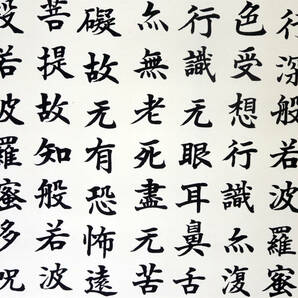 行深般若波羅蜜
色受想行識亦復
行識无眼耳鼻舌
亦無老死盡无苦
礙故无有恐怖遠
菩提故知般若波
般若波羅蜜多呪